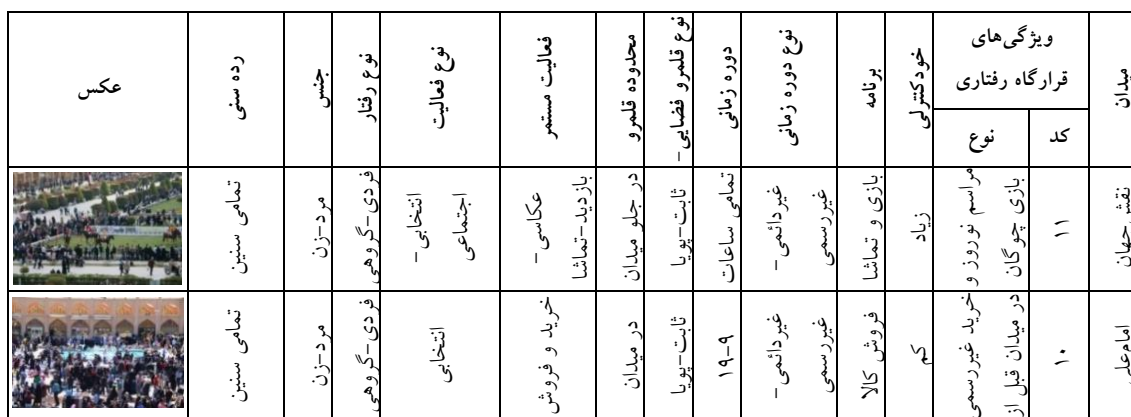 میدان
ویژگی‌های
قرارگاه رفتاری
کد
نوع
خودکنترلی
برنامه
نوع دوره زمانی
دوره زمانی
نوع قلمرو فضایی-
محدوده قلمرو
فعالیت مستمر
نوع فعالیت
نوع رفتار
جنس
رده سنی
عکس
نقش جهان
۱۱
مراسم نوروز و
بازی چوگان
زیاد
بازی و تماشا
غیردائمی-
غیررسمی
تمامی ساعات
ثابت-پویا
در جلو میدان
بازدید-تماشا
عکاسی-
انتخابی-
اجتماعی
فردی-گروهی
مرد-زن
تمامی سنین
امام‌علی
۱۰
خرید غیررسمی
در میدان قبل از
کم
فروش کالا
غیردائمی-
غیررسمی
۹-۱۹
ثابت-پویا
در میدان
خرید و فروش
انتخابی
فردی-گروهی
مرد-زن
تمامی سنین